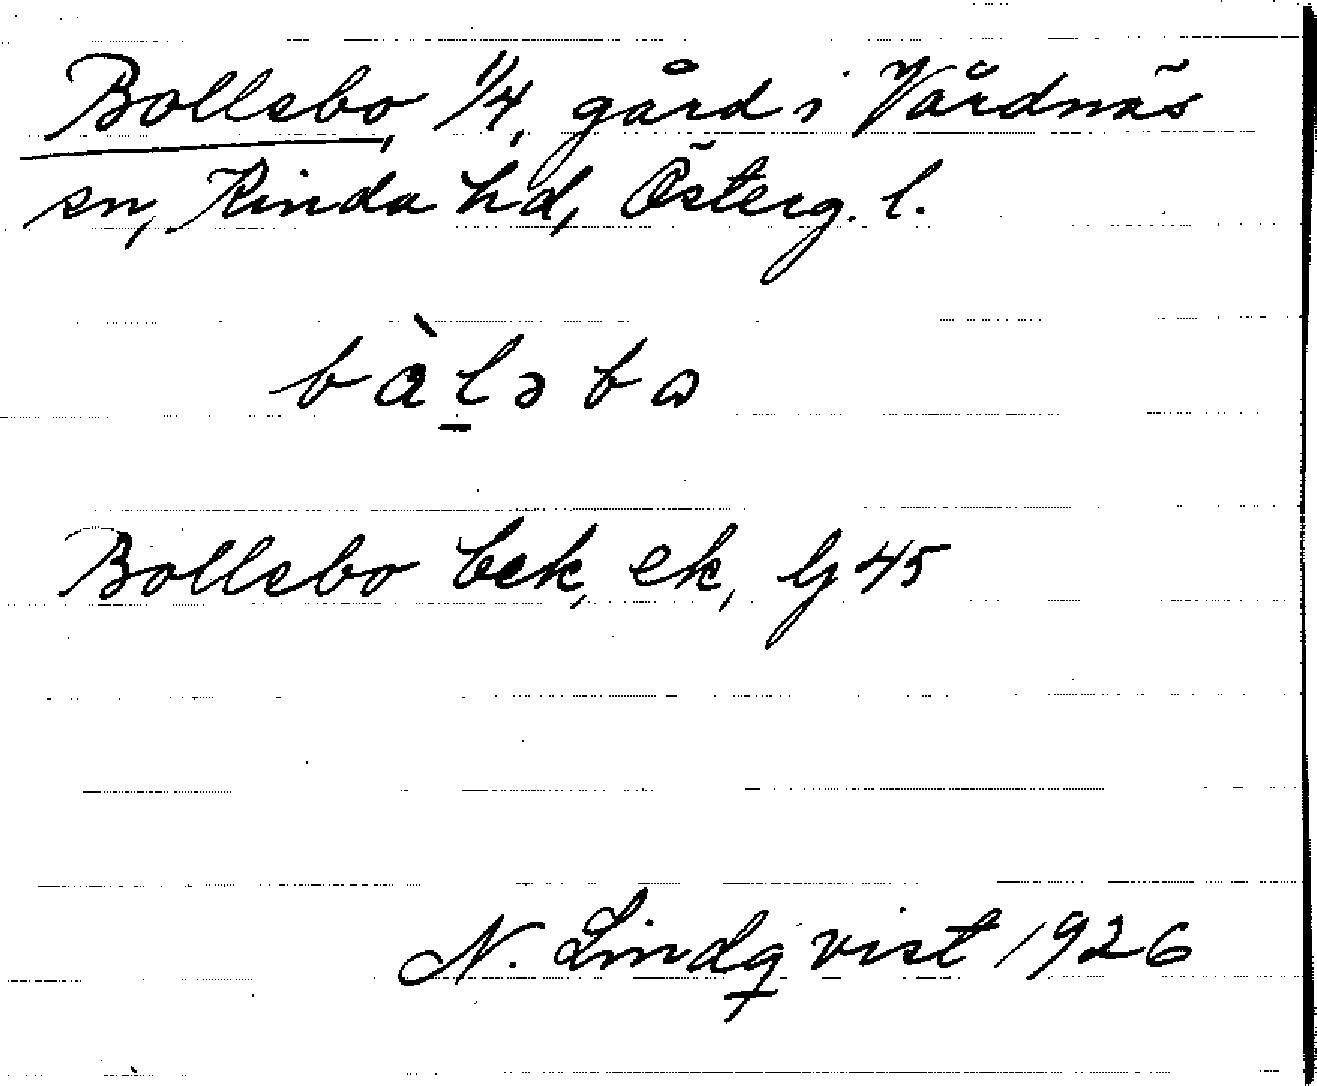 Bollebo, 1/4, gård i Vårdnäs
sn, Kinda hd, Österg. l.
bàlǝbɷ
Bollebo bek, ek, lj 45
N. Lindqvist 1926